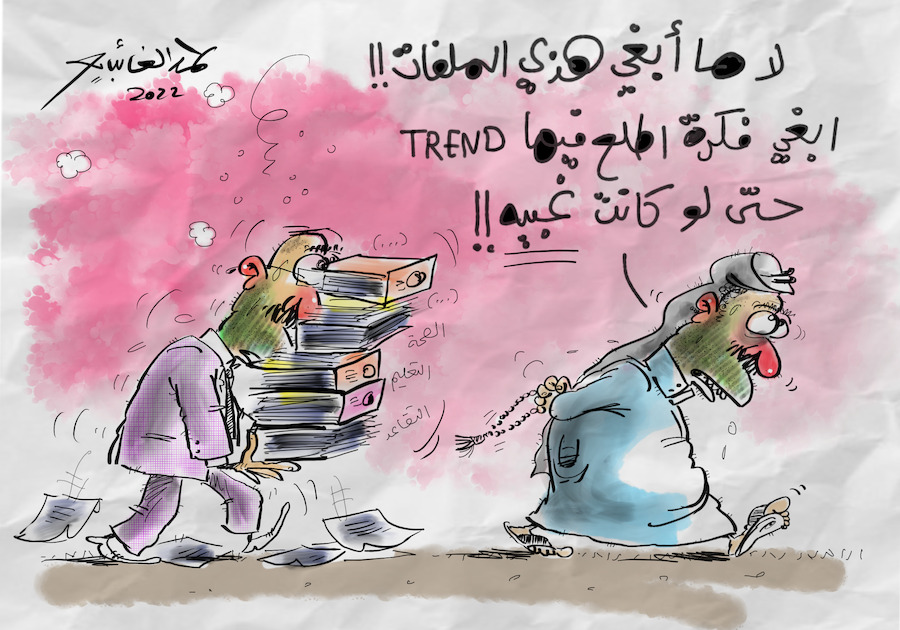 لا ما أبغي هذي الملفات!!
ابغي فكرة اطلع فيها TREND
حتى لو كانت غبيه!!
2022
(...)
(...)
الصحة
التعليم
التقاعد